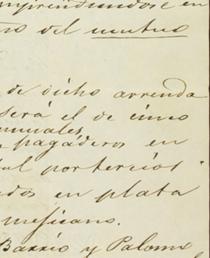 comprendiendose en
no del mutuo
de dicho arrenda
será el de cinco
anuales,
pagaderos en
por tercios
dos en plata
mejicano.
Barrio y Palomo